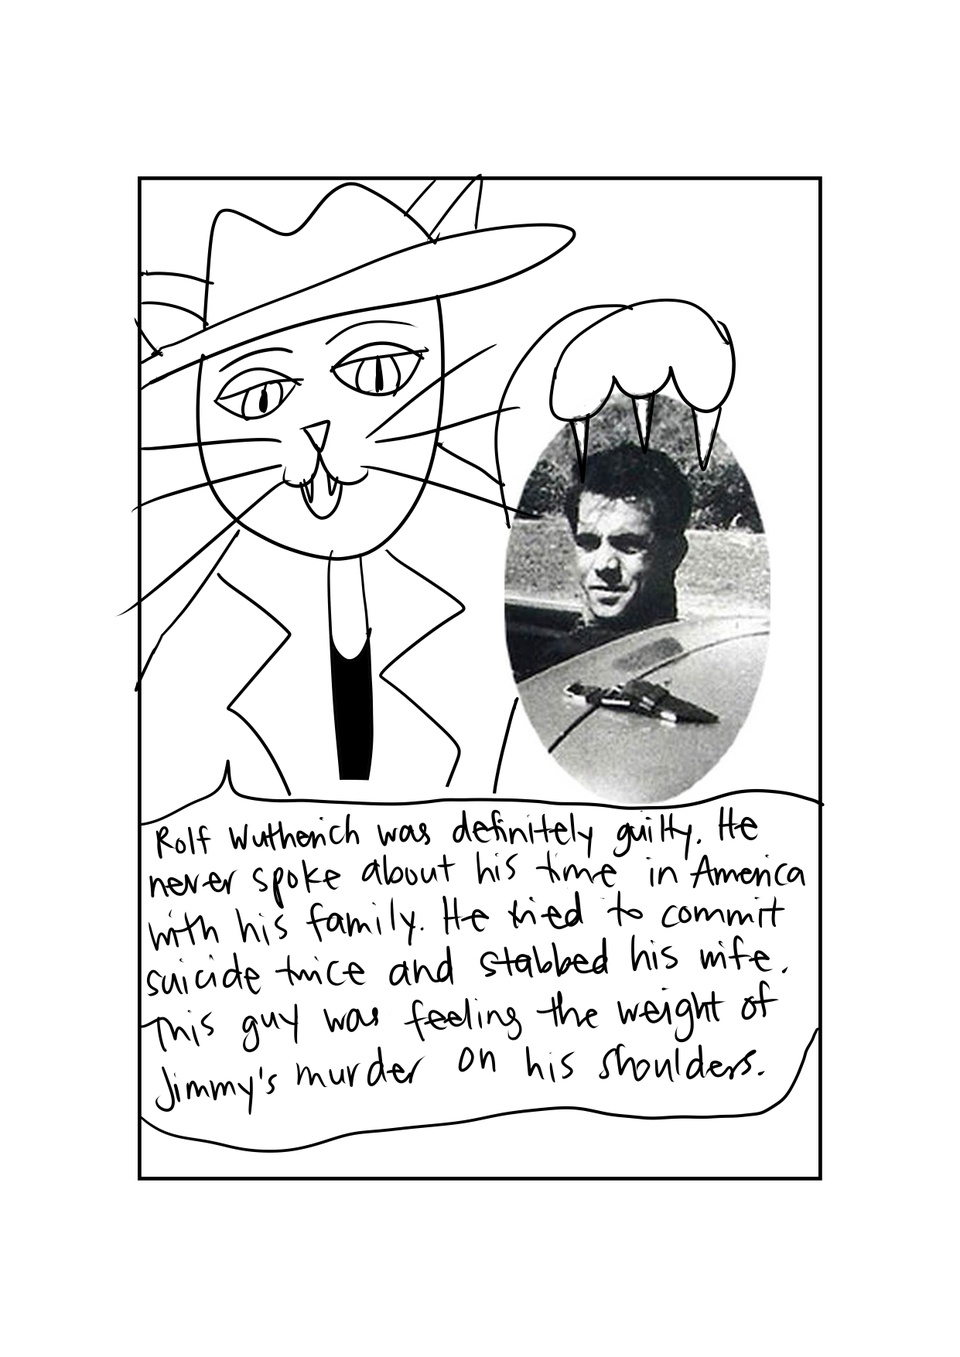 Rolf Wutherich was definitely guilty. He
never spoke about his time in America
with his family. He tried to commit
suicide twice and stabbed his wife.
This guy was feeling the weight of
Jimmy's murder on his shoulders.